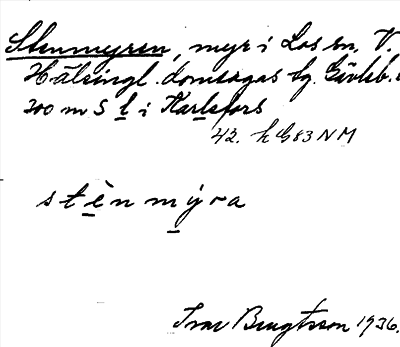 Stenmyren, myr i Los sn, V.
Hälsingl. domsagas tg. Gävleb.
300 m S l i Karlsfors
42. h G83 NM
stènmýra
Ivar Bengtsson 1936.